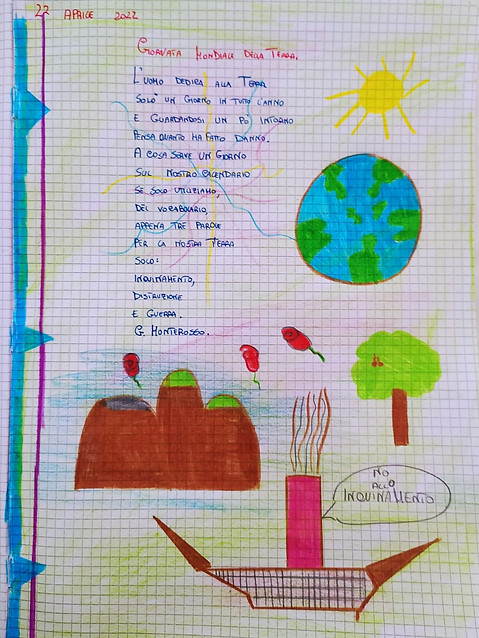 22 APRILE 2022
GIORNATA MONDIALE DELLA TERRA.
L'UOMO DEDICA ALLA TERRA
SOLO UN GIORNO IN TUTTO L'ANNO
E GUARDANDOSI UN PÒ INTORNO
PENSA QUANTO HA FATTO DANNO.
A COSA SERVE UN GIORNO
SUL NOSTRO CALENDARIO
SE SOLO UTILIZIAMO,
DEL VOCABOLARIO,
APPENA TRE PAROLE
PER LA NOSTRA TERRA
SOLO:
INQUINAMENTO,
DISTRUZIONE
E GUERRA.
G. MONTEROSSO.
NO
ALLO
INQUINAMENTO